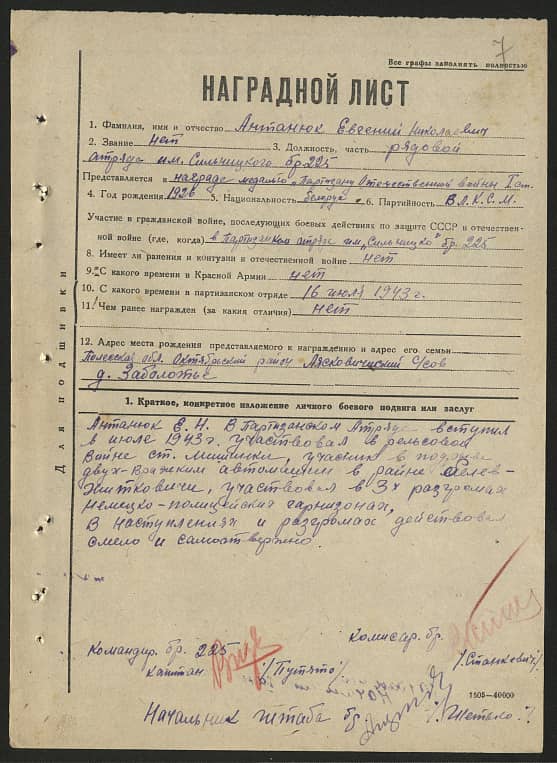 7
Все графы заполнять полностью
НАГРАДНОЙ ЛИСТ
1. Фамилия, имя и отчество Антанюк Евгений Николаевич
2. Звание нет 3. Должность, часть рядовой
отряда им. Сильницкого бр. 225
Представляется к награде медалью „Партизану Отечественной войны I ст.
4. Год рождения 1926 5. Национальность белорус 6. Партийность В Л.К.С.М.
Участие в гражданской войне, последующих боевых действиях по защите СССР и отечествен-
ной войне (где, когда) в Партизанком отряде им „Сильницко" бр. 225
8. Имеет ли ранения и контузии в отечественной войне нет
9. С какого времени в Красной Армии нет
10. С какого времени в партизанском отряде 16 июля 1943 г.
11. Чем ранее награжден (за какия отличия) нет
12. Адрес места рождения представляемого к награждению и адрес его семьи
Полесская обл. Октябрьский район Лясковичский С/сов
д. Заболотье
Для подшивки
1. Краткое, конкретное изложение личного боевого подвига или заслуг
Антанюк Е. Н. В Партизанском Отряде вступил
в июле 1943 г. участвовал в рельсовой
Войне ст. участник в подрыве
двух вражким автомашин в районе
Житковичи, участвовал в 3х разгромах
немецко-полицейских гарнизонах,
В наступлениях и разгромах действовал
смело и самоотвержно.
Командир бр. 225
капитан /Путято/
Комисар. бр.
/Станкевич/
1505—40000
Начальник штаба бр. /. Жетько. /